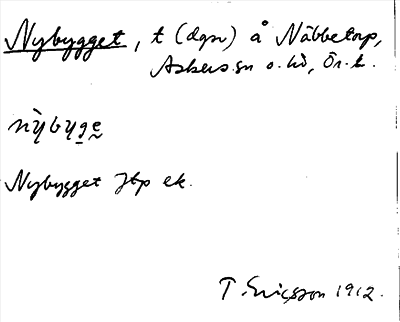 Nybygget, t (dgn) å Näbbetorp,
Askers sn o. hd, Ör. l.
nỳbyge
Nybygget Jtp ek.
T. Ericsson 1912.